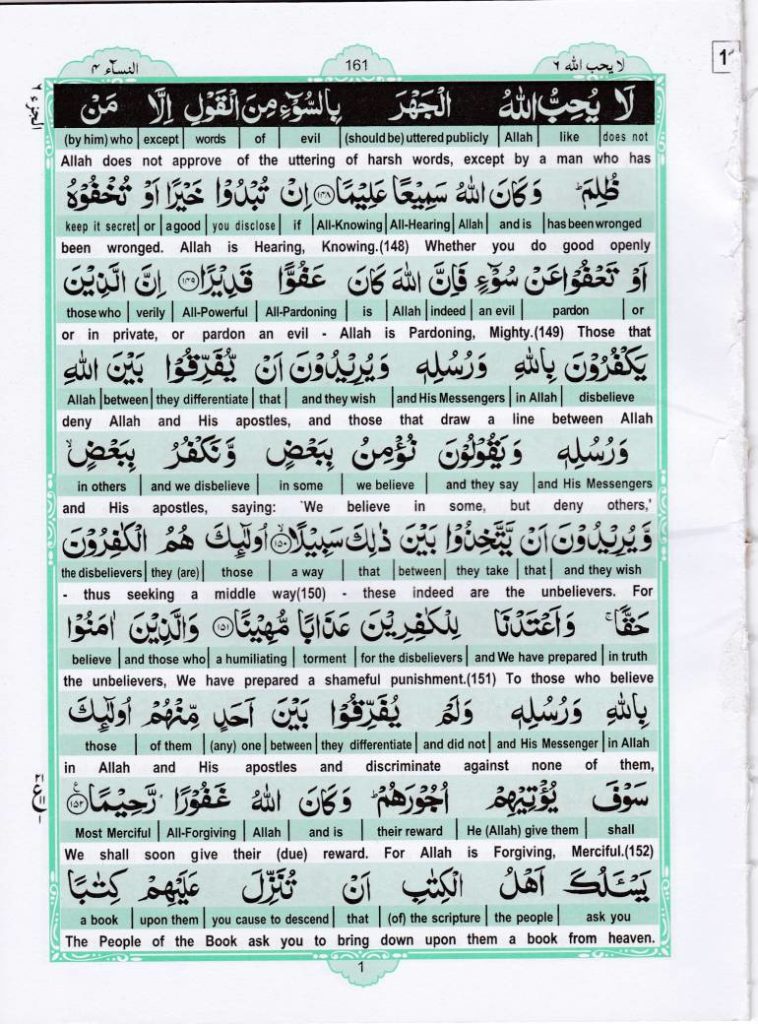 النسآء ۴ 161 لا یحب الله ۶
الجزء ۶
لَا یُحِبُّ اللّٰهُ الْجَهْرَ بِالسُّوْٓءِ مِنَ الْقَوْلِ اِلَّا مَنْ
(by him) who | except | words | of | evil | (should be) uttered publicly | Allah | like | does not
Allah does not approve of the uttering of harsh words, except by a man who has
ظُلِمَ ؕ وَ كَانَ اللّٰهُ سَمِیْعًا عَلِیْمًا ﴿۱۴۸﴾ اِنْ تُبْدُوْا خَیْرًا اَوْ تُخْفُوْهُ
keep it secret | or | a good | you disclose | if | All-Knowing | All-Hearing | Allah | and is | has been wronged
been wronged. Allah is Hearing, Knowing.(148) Whether you do good openly
اَوْ تَعْفُوْا عَنْ سُوْٓءٍ فَاِنَّ اللّٰهَ كَانَ عَفُوًّا قَدِیْرًا ﴿۱۴۹﴾ اِنَّ الَّذِیْنَ
those who | verily | All-Powerful | All-Pardoning | is | Allah | indeed | an evil | pardon | or
or in private, or pardon an evil - Allah is Pardoning, Mighty.(149) Those that
یَكْفُرُوْنَ بِاللّٰهِ وَ رُسُلِهٖ وَ یُرِیْدُوْنَ اَنْ یُّفَرِّقُوْا بَیْنَ اللّٰهِ
Allah | between | they differentiate | that | and they wish | and His Messengers | in Allah | disbelieve
deny Allah and His apostles, and those that draw a line between Allah
وَ رُسُلِهٖ وَ یَقُوْلُوْنَ نُؤْمِنُ بِبَعْضٍ وَّ نَكْفُرُ بِبَعْضٍ ۙ
in others | and we disbelieve | in some | we believe | and they say | and His Messengers
and His apostles, saying: 'We believe in some, but deny others,'
وَّ یُرِیْدُوْنَ اَنْ یَّتَّخِذُوْا بَیْنَ ذٰلِكَ سَبِیْلًا ﴿۱۵۰﴾ اُولٰٓئِكَ هُمُ الْكٰفِرُوْنَ
the disbelievers | they (are) | those | a way | that | between | they take | that | and they wish
- thus seeking a middle way(150) - these indeed are the unbelievers. For
حَقًّا ۚ وَ اَعْتَدْنَا لِلْكٰفِرِیْنَ عَذَابًا مُّهِیْنًا ﴿۱۵۱﴾ وَ الَّذِیْنَ اٰمَنُوْا
believe | and those who | a humiliating | torment | for the disbelievers | and We have prepared | in truth
the unbelievers, We have prepared a shameful punishment.(151) To those who believe
بِاللّٰهِ وَ رُسُلِهٖ وَ لَمْ یُفَرِّقُوْا بَیْنَ اَحَدٍ مِّنْهُمْ اُولٰٓئِكَ
those | of them | (any) one | between | they differentiate | and did not | and His Messenger | in Allah
in Allah and His apostles and discriminate against none of them,
سَوْفَ یُؤْتِیْهِمْ اُجُوْرَهُمْ ؕ وَ كَانَ اللّٰهُ غَفُوْرًا رَّحِیْمًا ﴿۱۵۲﴾
Most Merciful | All-Forgiving | Allah | and is | their reward | He (Allah) give them | shall
We shall soon give their (due) reward. For Allah is Forgiving, Merciful.(152)
یَسْـَٔلُكَ اَهْلُ الْكِتٰبِ اَنْ تُنَزِّلَ عَلَیْهِمْ كِتٰبًا
a book | upon them | you cause to descend | that | (of) the scripture | the people | ask you
The People of the Book ask you to bring down upon them a book from heaven.
1